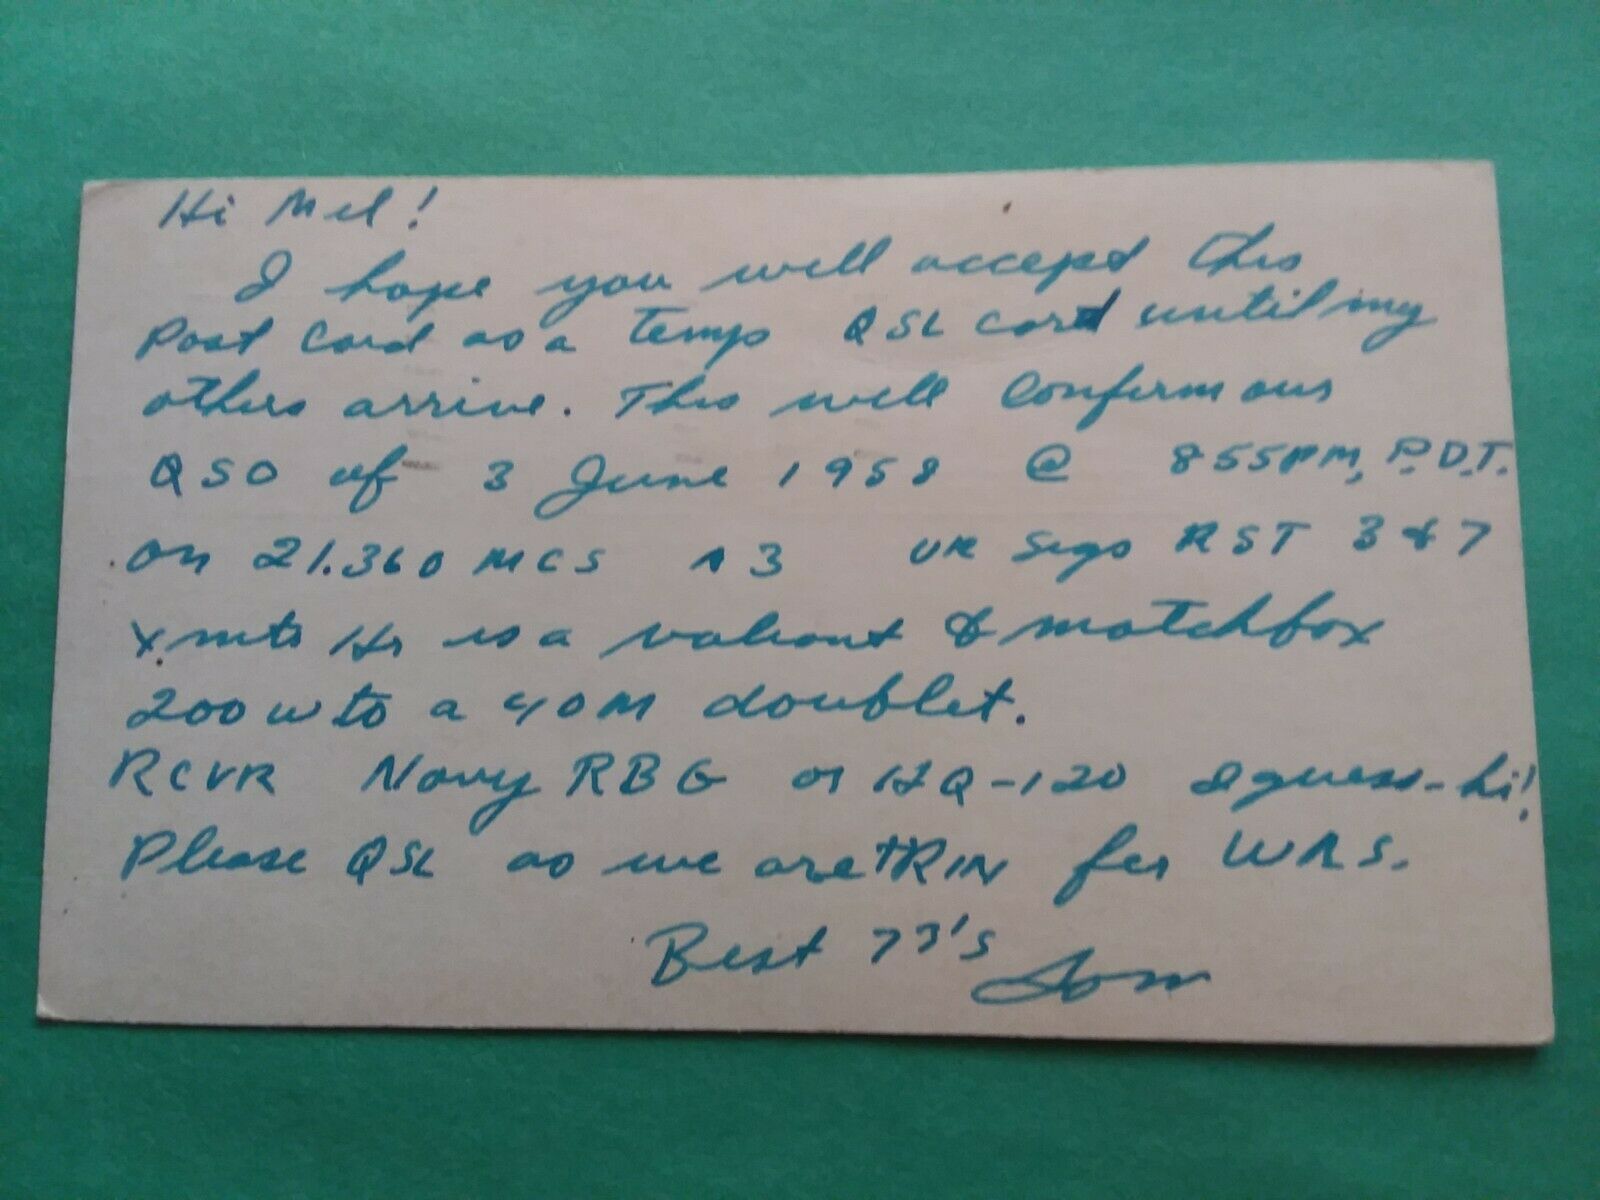 Hi Mel!
I hope you will accept this
Post Card as a Temp QSL card until my
others arrive. This will Confirm our
QSO of 3 June 1958 @ 855PM, P.D.T.
on 21.360 MCS A3 UR Sigs RST 3 & 7
Xmtr Hr is a valiant & matchbox
200w to a 40M doublet.
RCVR Navy RBG or HQ-120 I guess-hi!
Please QSL as we are tRIN for WAS.
Best 73's Tom